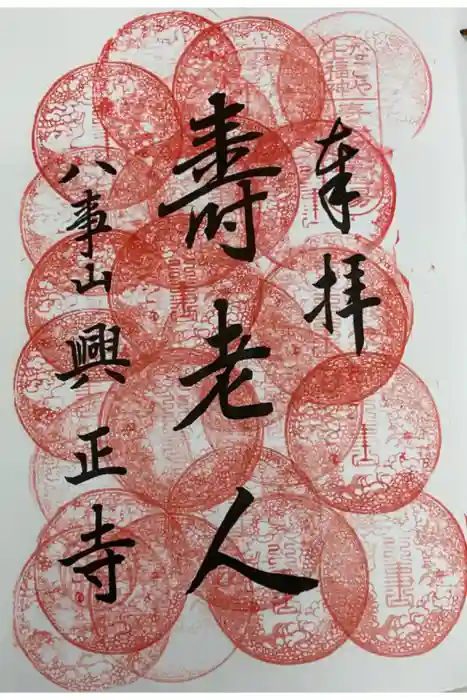 奉拝
寿老人
八事山興正寺